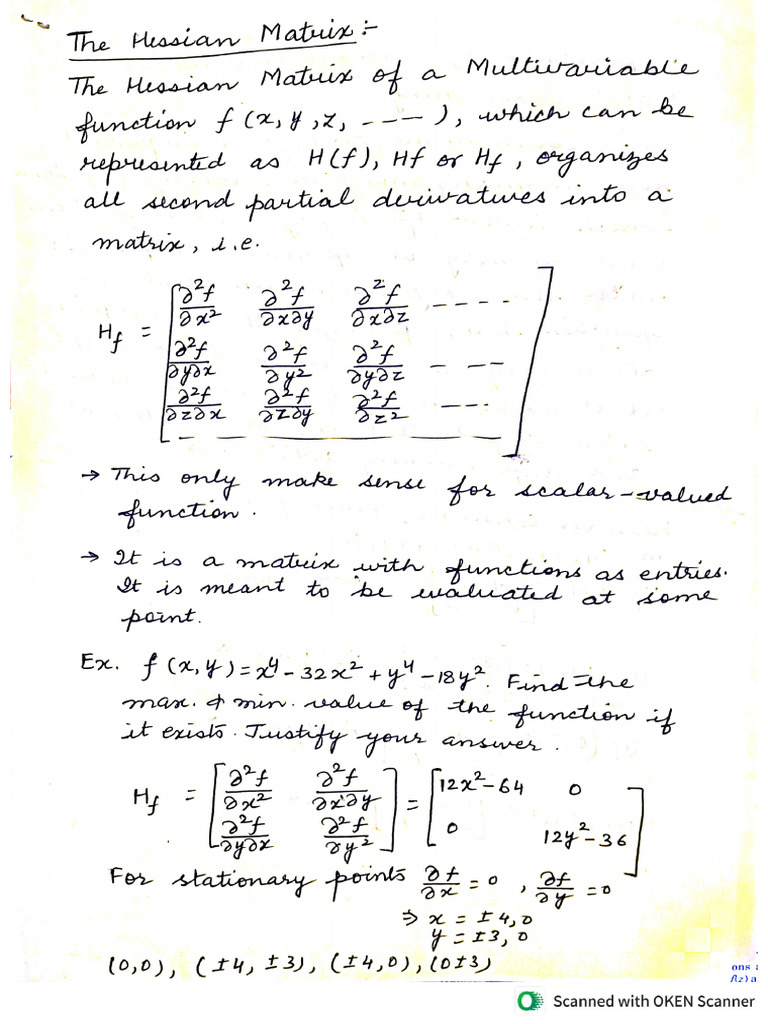 The Hessian Matrix :-
The Hessian Matrix of a Multivariable
function f (x, y, z, - - - ), which can be
represented as H(f), Hf or H_f, organizes
all second partial derivatives into a
matrix, i.e.
H_f = [ ∂²f/∂x² ∂²f/∂x∂y ∂²f/∂x∂z - - - -
∂²f/∂y∂x ∂²f/∂y² ∂²f/∂y∂z - - -
∂²f/∂z∂x ∂²f/∂z∂y ∂²f/∂z² - - -
- - - - - - - ]
→ This only make sense for scalar-valued
function.
→ It is a matrix with functions as entries.
It is meant to be evaluated at some
point.
Ex. f (x, y) = x⁴ - 32x² + y⁴ - 18y². Find the
max. & min. value of the function if
it exists. Justify your answer.
H_f = [ ∂²f/∂x² ∂²f/∂x∂y ; ∂²f/∂y∂x ∂²f/∂y² ] = [ 12x²-64 0 ; 0 12y²-36 ]
For stationary points ∂f/∂x = 0 , ∂f/∂y = 0
⇒ x = ±4, 0
y = ±3, 0
(0,0), (±4, ±3), (±4,0), (0±3)
ons
f(z) a
Scanned with OKEN Scanner